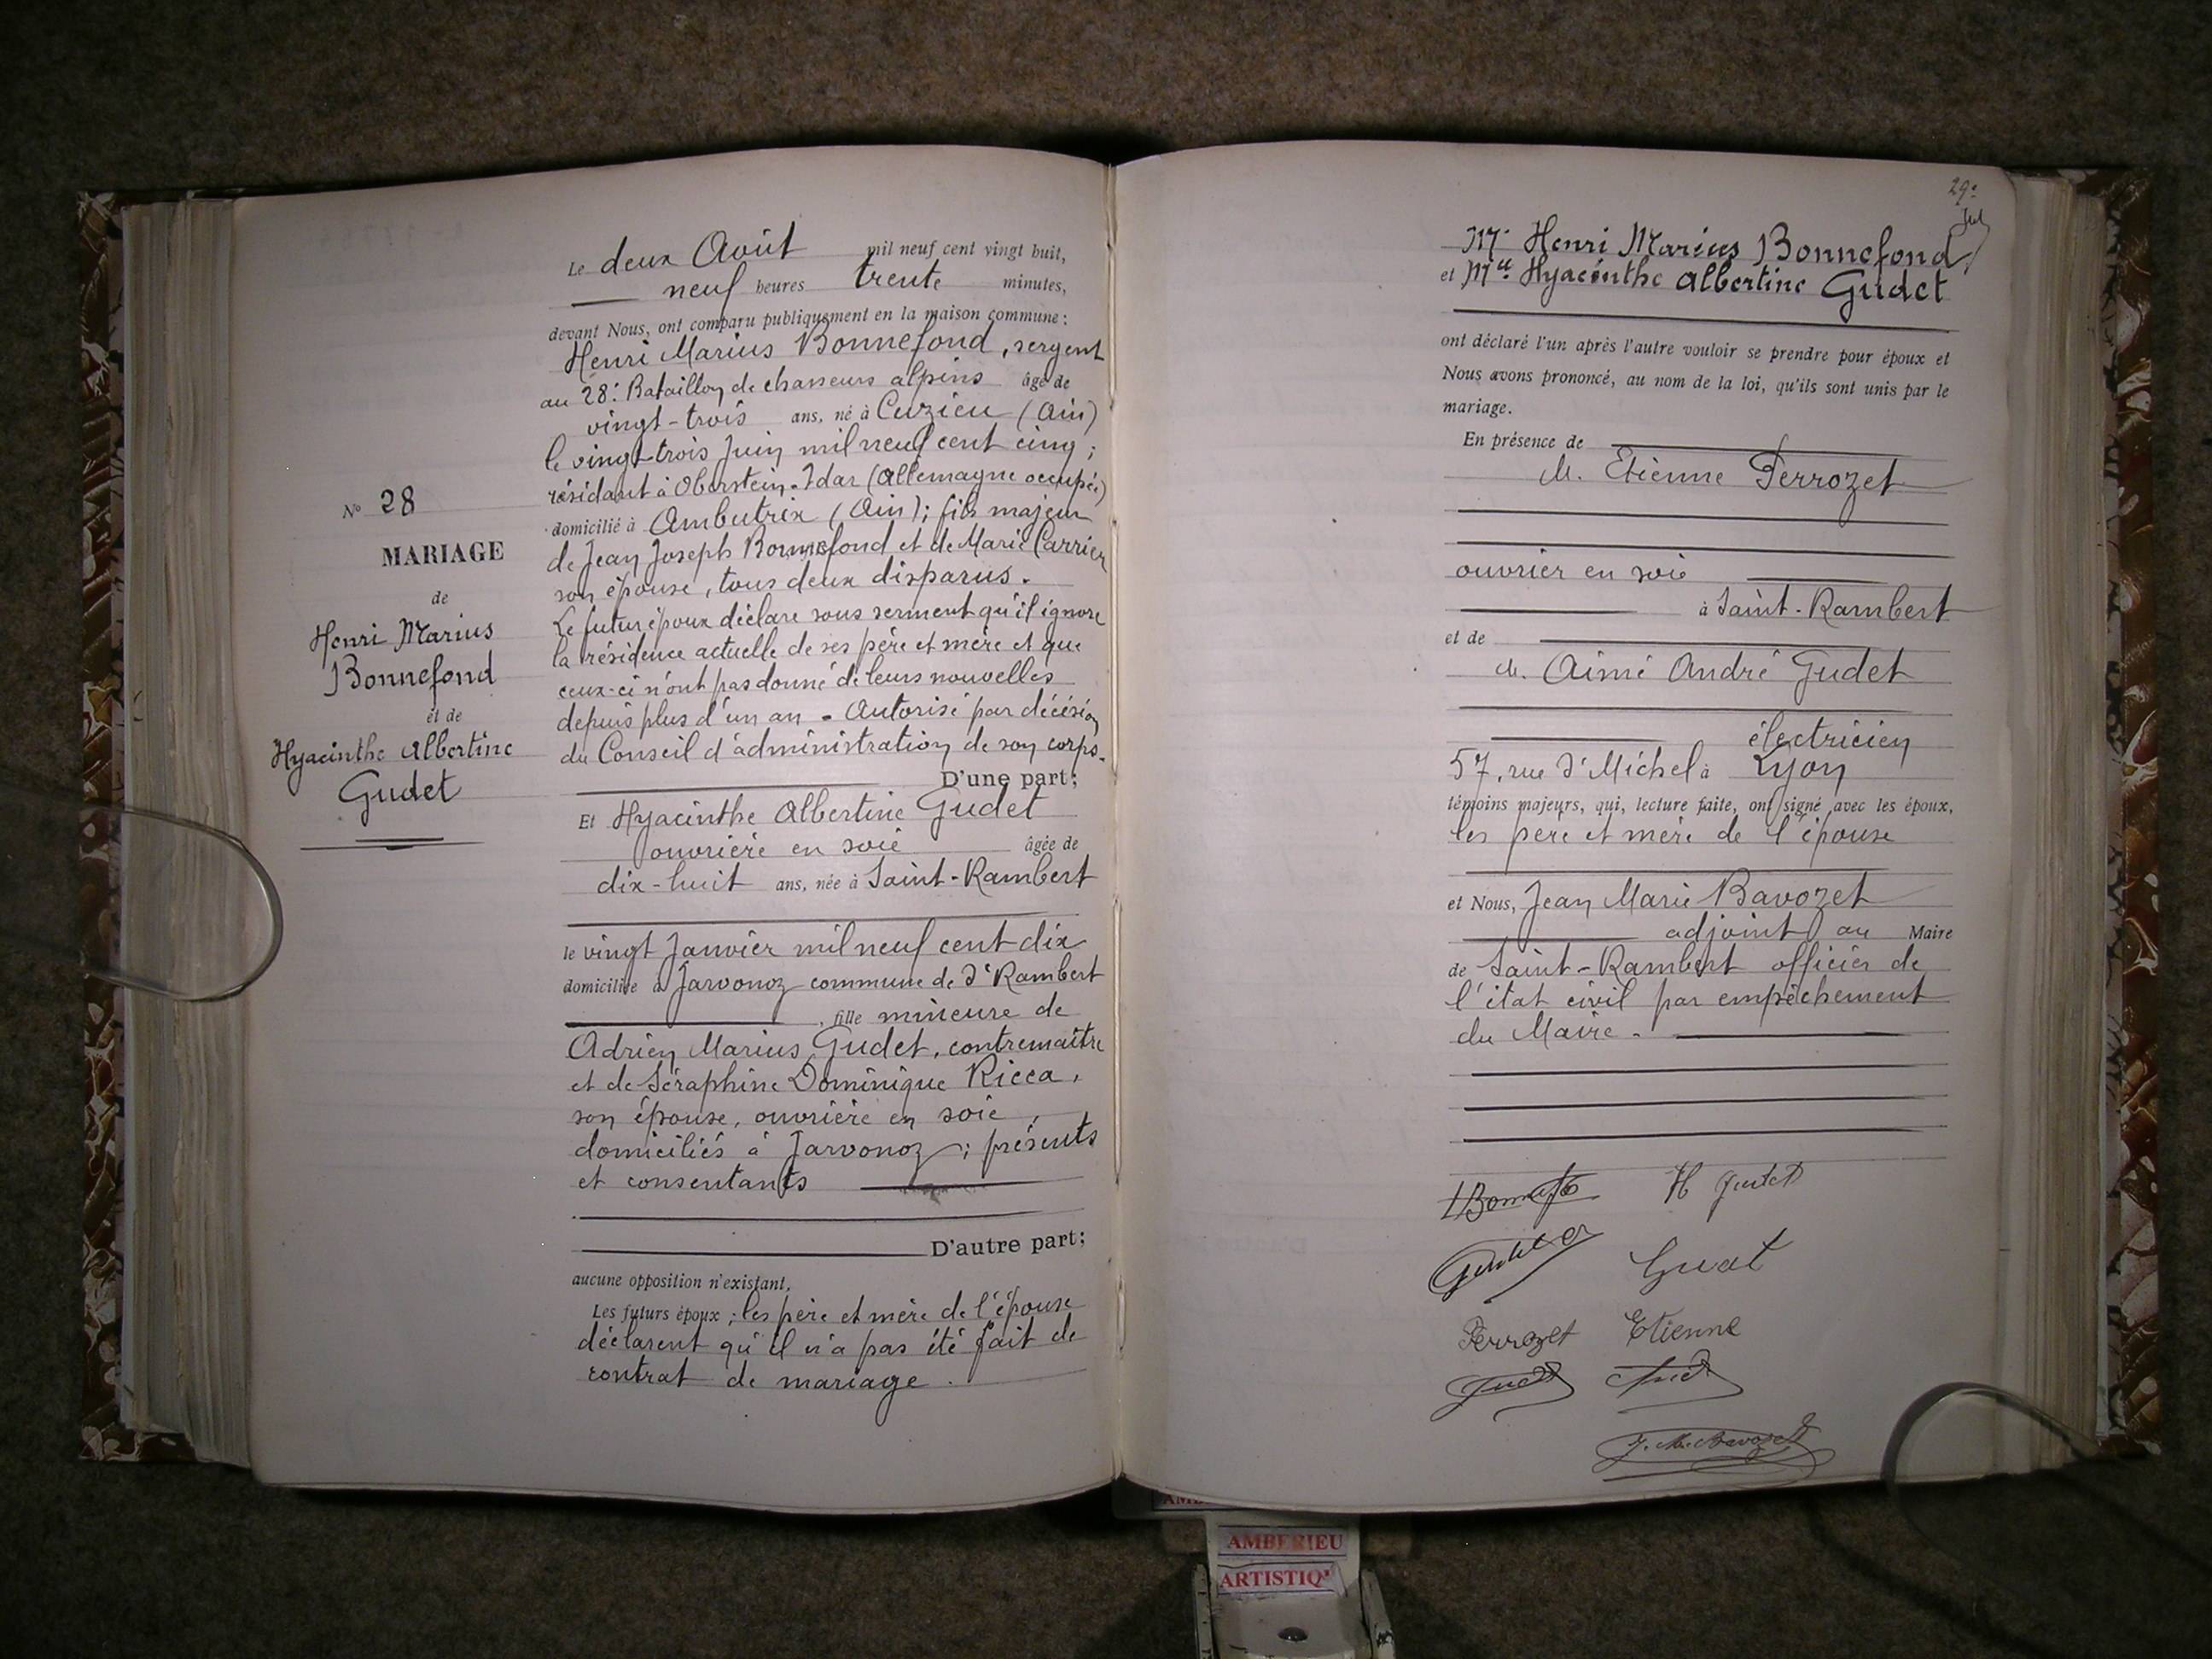 N° 28
MARIAGE
de
Henri Marius
Bonnefond
et de
Hyacinthe Albertine
Gudet
Le deux Août mil neuf cent vingt huit,
neuf heures trente minutes,
devant Nous, ont comparu publiquement en la maison commune :
Henri Marius Bonnefond, sergent
au 28e Bataillon de chasseurs alpins âgé de
vingt-trois ans, né à Cuzieu (Ain)
le vingt-trois Juin mil neuf cent cinq ;
résidant à Oberstein-Idar (Allemagne occupée)
domicilié à Ambutrix (Ain) ; fils majeur
de Jean Joseph Bonnefond et de Marie Carrier
son épouse, tous deux disparus.
Le futur époux déclare sous serment qu'il ignore
la résidence actuelle de ses père et mère et que
ceux-ci n'ont pas donné de leurs nouvelles
depuis plus d'un an - Autorisé par décision
du Conseil d'administration de son corps.
D'une part ;
Et Hyacinthe Albertine Gudet
ouvrière en soie âgée de
dix-huit ans, née à Saint-Rambert
le vingt Janvier mil neuf cent dix
domiciliée à Javonoz commune de St Rambert
, fille mineure de
Adrien Marius Gudet, contremaître
et de Séraphine Dominique Ricca,
son épouse, ouvrière en soie,
domiciliés à Javonoz ; présents
et consentants
D'autre part ;
aucune opposition n'existant,
Les futurs époux ; les père et mère de l'épouse
déclarent qu'il n'a pas été fait de
contrat de mariage.
29e
Mr Henri Marius Bonnefond
et Mlle Hyacinthe Albertine Gudet
ont déclaré l'un après l'autre vouloir se prendre pour époux et
Nous avons prononcé, au nom de la loi, qu'ils sont unis par le
mariage.
En présence de
M. Etienne Perrozet
ouvrier en soie
à Saint-Rambert
et de
M. Aimé André Gudet
électricien
57, rue St Michel à Lyon
témoins majeurs, qui, lecture faite, ont signé avec les époux,
les père et mère de l'épouse
et Nous, Jean Marie Bavozet
adjoint au Maire
de Saint-Rambert officier de
l'état civil par empêchement
du Maire.
H Gudet
Perrozet Etienne
J. M. Bavozet
AMBERIEU
ARTISTIQ